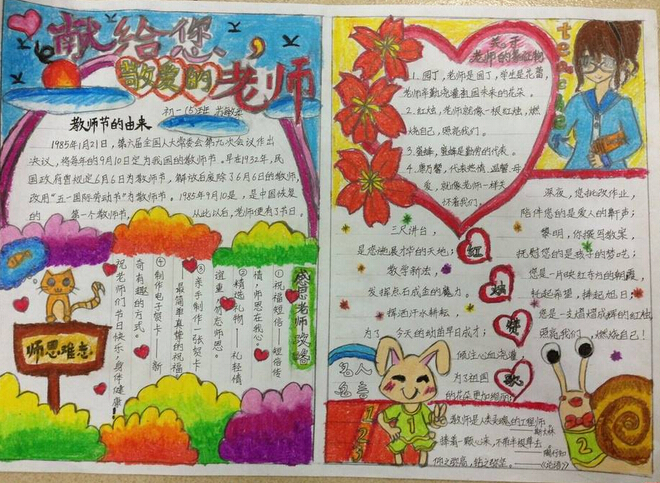 献给您,
敬爱的老师
教师节的由来
1985年1月21日，第六届全国人大常委会第九次会议作出
决议，将每年的9月10日定为我国的教师节。早在1932年，民
国政府曾规定6月6日为教师节，解放后废除了6月6日的教师节，
改用"五一国际劳动节"为教师节。1985年9月10是，是中国恢复
的 第一个教师节， 从此以后，老师便有了节日。
感恩老师
①祝福短信 短信传
情，师恩在我心。
②精选礼物——礼轻情
谊重
③亲手制作一张贺卡——
最简单真挚的祝福
④制作电子贺卡——新
奇有趣的方式。
祝老师们节日快乐，身体健康!
师恩难忘
关于
老师的象征物
1.园丁，老师是园丁，学生是花蕾，
2.红烛，老师就像一根红烛，燃
烧自己，照亮我们。
3.蜜蜂，蜜蜂是勤劳的代表。
4.康乃馨，代表热情、温馨、母
爱，就像老师一样关
怀着我们。
teacher
三尺讲台，
是您施展才华的天地；
教学新法，
发挥点石成金的魔力。
挥洒汗水耕耘，
为了 今天的幼苗早日成才；
倾注心血浇灌，
为了祖国
的花朵更加绚丽。
红
烛
赞
歌
深夜，您批改作业，
陪伴您的是爱人的鼾声；
黎明，你撰写教案，
抚慰您的是孩子的梦呓；
您是一片映红东方的朝霞，
托起希望，捧起旭日；
您是一支熠熠成辉的红烛，
照亮我们，燃烧自己！
名人
名言
1
2
3
教师是人类灵魂的工程师
——斯大林
捧着一颗心来，不带半根草去
——陶行知
仰之弥高，钻之弥坚。
——《论语》
1
2